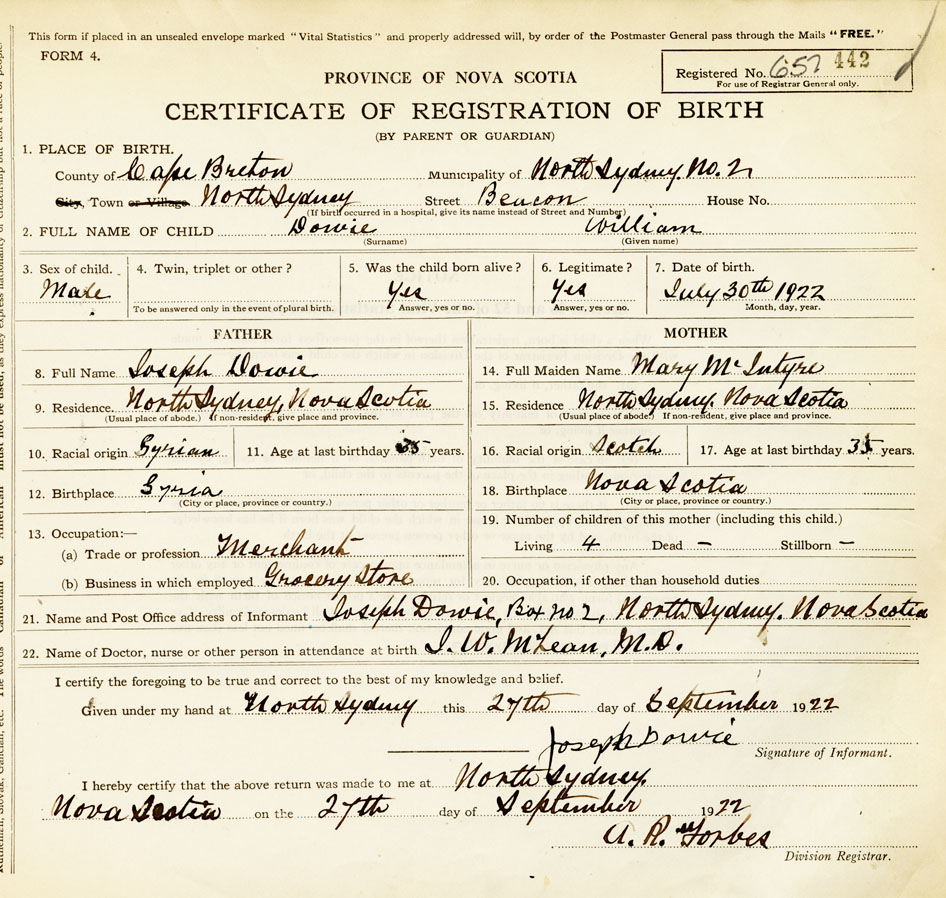 This form if placed in an unsealed envelope marked "Vital Statistics" and properly addressed will, by order of the Postmaster General pass through the Mails "FREE."
FORM 4.
Registered No. 657 442
For use of Registrar General only.
PROVINCE OF NOVA SCOTIA
CERTIFICATE OF REGISTRATION OF BIRTH
(BY PARENT OR GUARDIAN)
1. PLACE OF BIRTH.
County of Cape Breton Municipality of North Sydney. No. 2
City, Town or Village North Sydney Street Beacon House No.
(If birth occurred in a hospital, give its name instead of Street and Number)
2. FULL NAME OF CHILD Dowie William
(Surname) (Given name)
3. Sex of child. 4. Twin, triplet or other? 5. Was the child born alive? 6. Legitimate? 7. Date of birth.
Male Yes Yes July 30th 1922
To be answered only in the event of plural birth. Answer, yes or no. Answer, yes or no. Month, day, year.
FATHER
8. Full Name Joseph Dowie
9. Residence. North Sydney, Nova Scotia
(Usual place of abode.) If non-resident, give place and province.
10. Racial origin Syrian 11. Age at last birthday 35 years.
12. Birthplace Syria
(City or place, province or country.)
13. Occupation:—
(a) Trade or profession Merchant
(b) Business in which employed Grocery Store
MOTHER
14. Full Maiden Name Mary McIntyre
15. Residence North Sydney. Nova Scotia
(Usual place of abode.) If non-resident, give place and province.
16. Racial origin Scotch 17. Age at last birthday 35 years.
18. Birthplace Nova Scotia
(City or place, province or country.)
19. Number of children of this mother (including this child.)
Living 4 Dead — Stillborn —
20. Occupation, if other than household duties
21. Name and Post Office address of Informant Joseph Dowie, Box no 2, North Sydney. Nova Scotia
22. Name of Doctor, nurse or other person in attendance at birth J. W. McLean, M.D.
I certify the foregoing to be true and correct to the best of my knowledge and belief.
Given under my hand at North Sydney this 27th day of September 1922
Joseph Dowie
Signature of Informant.
I hereby certify that the above return was made to me at North Sydney.
Nova Scotia on the 27th day of September 1922
A. R. Forbes
Division Registrar.